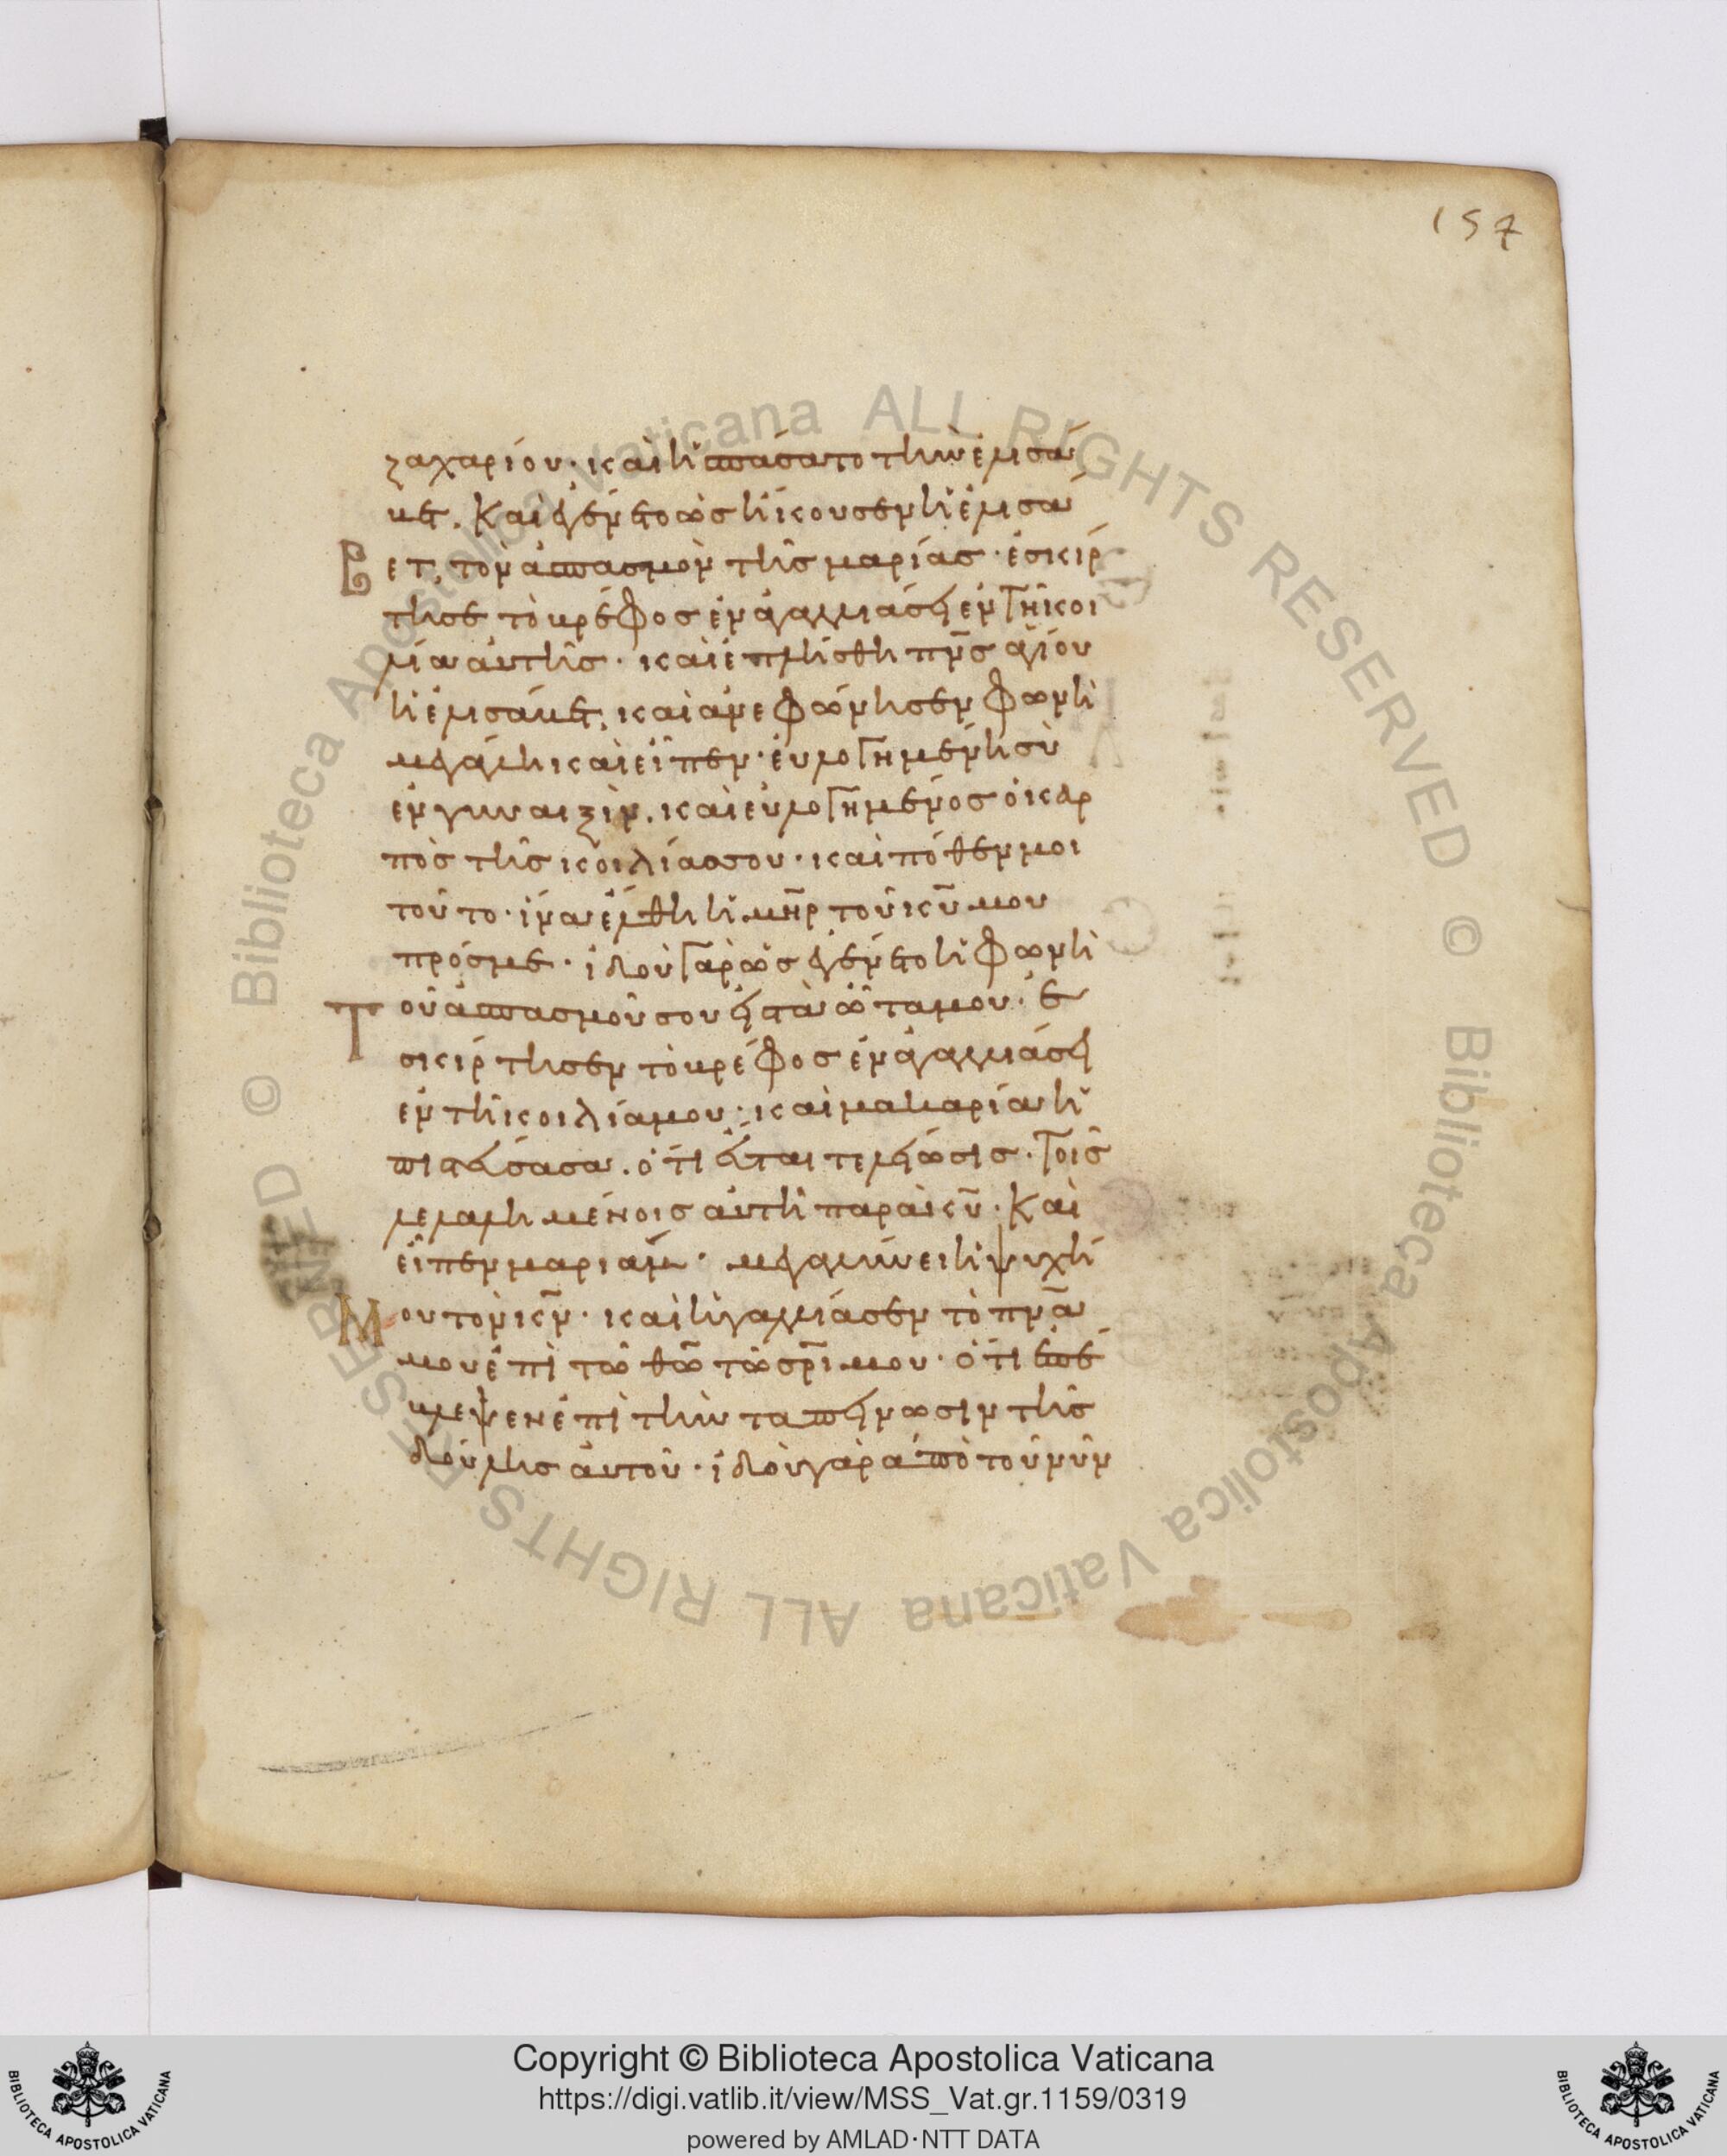 157
ζαχαρίου· καὶ ἠσπάσατο τὴν ἐλισά
βετ. Καὶ ἐγένετο ὡς ἤκουσεν ἡ ἐλισά
βετ, τὸν ἀσπασμὸν τῆς μαρίας· ἐσκίρ
τησε τὸ βρέφος ἐν ἀγαλλιάσει ἐν τῆ κοι
λία αὐτῆς· καὶ ἐπλήσθη πνς ἁγίου
ἡ ἐλισάβετ, καὶ ἀνεφώνησεν φωνὴ
μεγάλη καὶ εἶπεν· εὐλογημένη σὺ
ἐν γυναιξὶν. καὶ εὐλογημένος ὁ καρ
πὸς τῆς κοιλίας σου· καὶ πόθεν μοι
τοῦτο· ἵνα ἔλθη ἡ μηρ τοῦ κυ μου
πρός με· ἰδοὺ γὰρ ὡς ἐγένετο ἡ φωνὴ
Τοῦ ἀσπασμοῦ σου εἰς τὰ ὦτα μου· ἐ
σκίρτησεν τὸ βρέφος ἐν ἀγαλλιάσει
ἐν τῆ κοιλία μου· καὶ μακαρία ἡ
πιστεύσασα. ὅτι ἔσται τελείωσις· τοῖς
λελαλημένοις αὐτῆ παρὰ κυ· Καὶ
εἶπεν μαριάμ· μεγαλύνει ἡ ψυχή
Μου τὸν κν· καὶ ἠγαλλίασεν τὸ πνα
μου ἐπὶ τῶ θω τῶ σρι μου· ὅτι ἐπέ
βλεψεν ἐπὶ τὴν ταπείνωσιν τῆς
δούλης αὐτοῦ· ἰδοὺ γὰρ ἀπὸ τοῦ νῦν
© Biblioteca Apostolica Vaticana ALL RIGHTS RESERVED © Biblioteca Apostolica Vaticana ALL RIGHTS RESERVED
Copyright © Biblioteca Apostolica Vaticana
https://digi.vatlib.it/view/MSS_Vat.gr.1159/0319
powered by AMLAD·NTT DATA
BIBLIOTECA APOSTOLICA VATICANA
BIBLIOTECA APOSTOLICA VATICANA